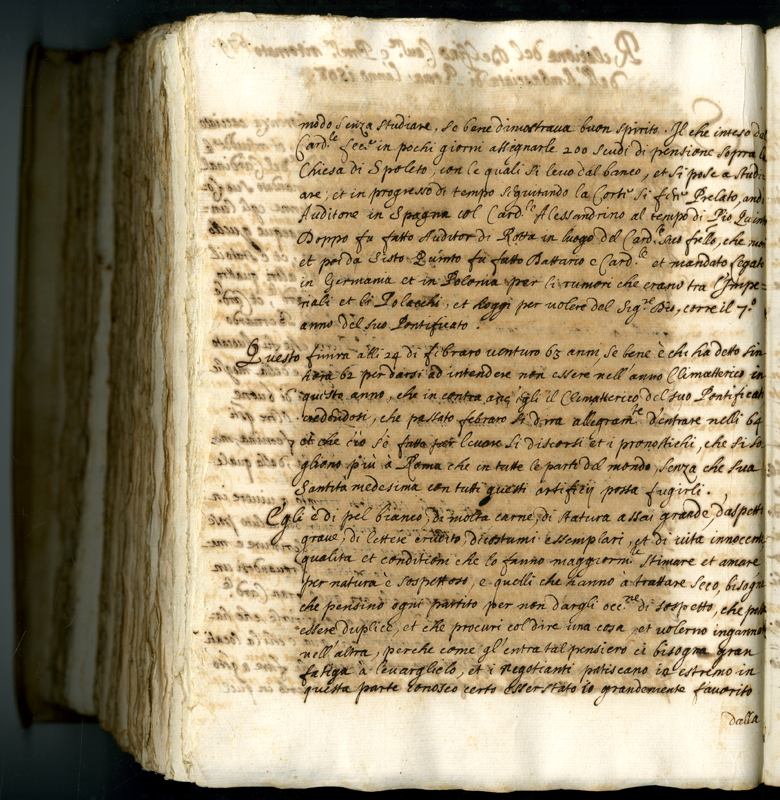 modo senza studiare, se bene dimostrava buon spirito. Il che inteso dal
Card.le in pochi giorni assignarle 200 scudi di pensione sopra la
Chiesa di Spoleto, con le quali si levo dal banco, et si pose a studi
are, et in progresso di tempo seguitando la Corte si fece Prelato, andò
Auditore in Spagna col Card.le Alessandrino al tempo di Pio Quinto
Doppo fu fatto Auditor di Rotta in luogo del Card.le suo frello, che morì
et poi da Sisto Quinto fu fatto Dattario e Card.le et mandato legato
in Germania et in Polonia per li rumori che erano tra l'Impe=
riali et li Polacchi, et hoggi per volere del Sig.re Dio, corre il 7.o
anno del suo Pontificato.
Questo finira alli 24 di febraro venturo 63 anni, se bene è chi ha detto fin
hora 62 per darsi ad intendere non essere nell'anno Climatterico in
questo anno, che in contra egli il Climatterico del suo Pontificato
credendosi, che passato febraro si dira allegram.te d'entrare nelli 64
et che ciò se fatto per levare si discorsi et i pronostichi, che si so
gliono più à Roma che in tutte le parti del mondo, senza che sua
Santità medesima con tutti questi artificij possa fugirli.
Egli è di pel bianco, di molta carne, di statura assai grande, d'aspetto
grave, di lettere erudito, di costumi essemplari, et di vita innocente
qualità et conditioni che lo fanno maggiorm.te stimare et amare
per natura è sospettoso, e quelli che hanno à trattare seco, bisogna
che pensino ogni partito per non dargli occ.ne di sospetto, che possa
essere duplice, et che procuri col dire una cosa, et volerno ingannare
nell'altra, perche come gl'entra tal pensiero ci bisogna gran
fatiga à levarglielo, et i negotianti patiscano io estremo in
questa parte conosco certo esser stato io grandemente favorito
dalla